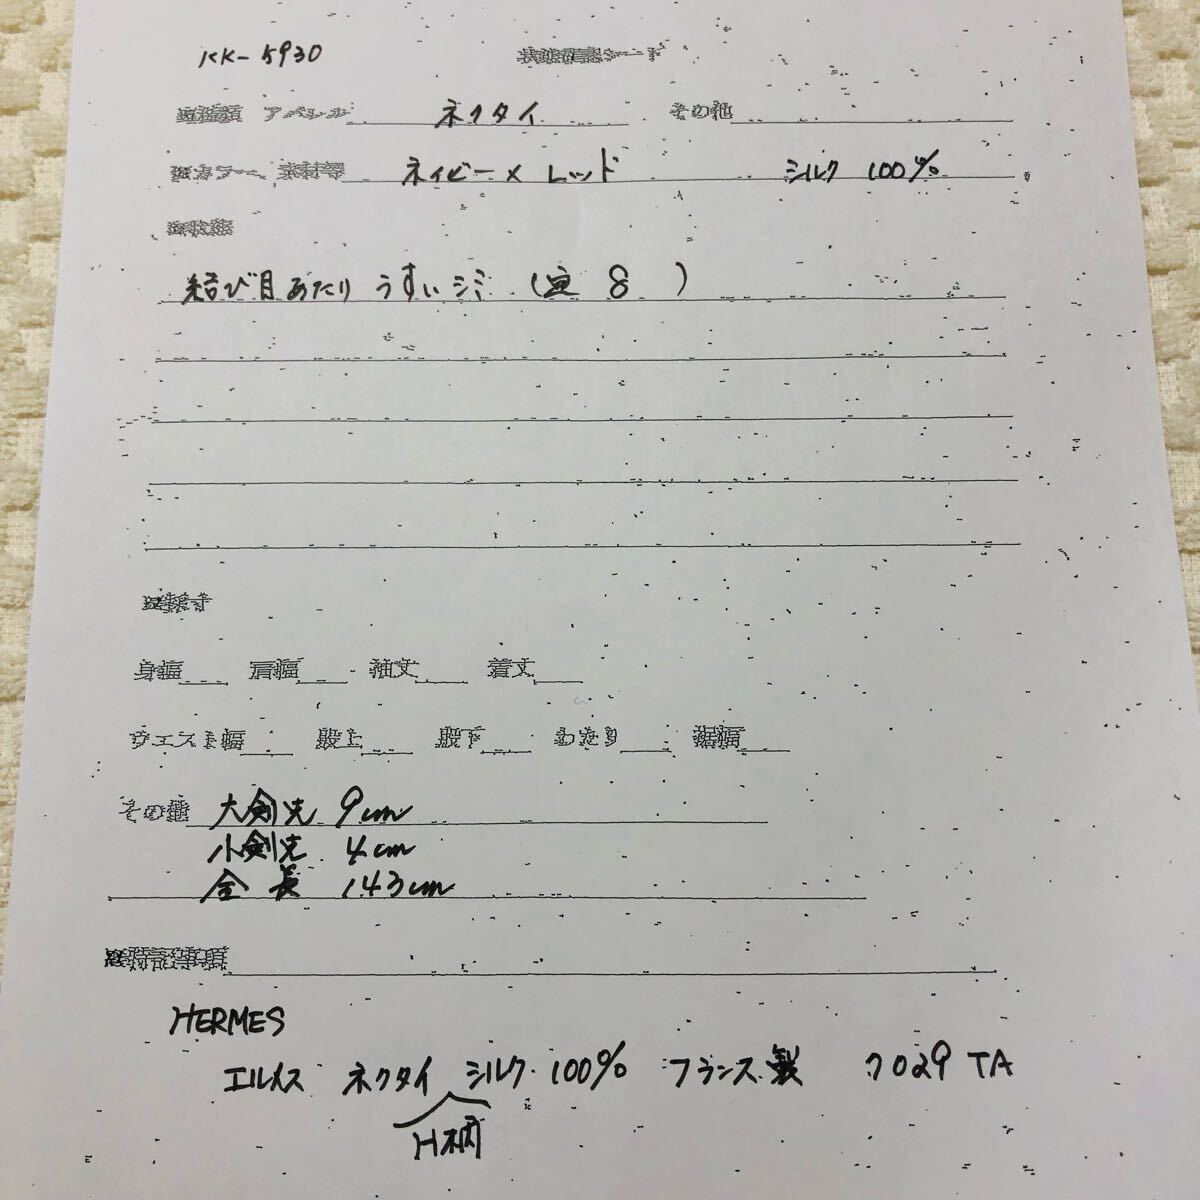 KK-5930 状態確認シート
アパレル ネクタイ その他
カラー、素材等 ネイビー×レッド シルク 100%
結び目あたり うすいシミ ( 8 )
身幅 肩幅 袖丈 着丈
ウエスト幅 股上 股下 わたり 裾幅
その他 大剣先 9cm
小剣先 4cm
全長 143cm
※特記事項
HERMES
エルメス ネクタイ シルク 100% フランス製 7029 TA
H柄